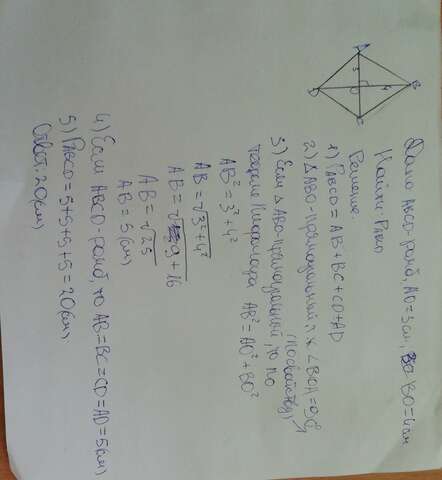 Дано ABCD-ромб, AO=3см, BO=4см
Найти PABCD
A
B
C
D
O
3
4
Решение:
1) PABCD = AB+BC+CD+AD
2) △ABO-прямоугольный, т.к ∠BOA=90°
(по свойству)
3) Если △ABO-прямоугольный, то по
теореме Пифагора AB²=AO²+BO²
AB²=3²+4²
AB=√3²+4²
AB=√9+16
AB=√25
AB=5(см)
4) Если ABCD-ромб, то AB=BC=CD=AD=5(см)
5) PABCD=5+5+5+5=20(см)
Ответ: 20(см)